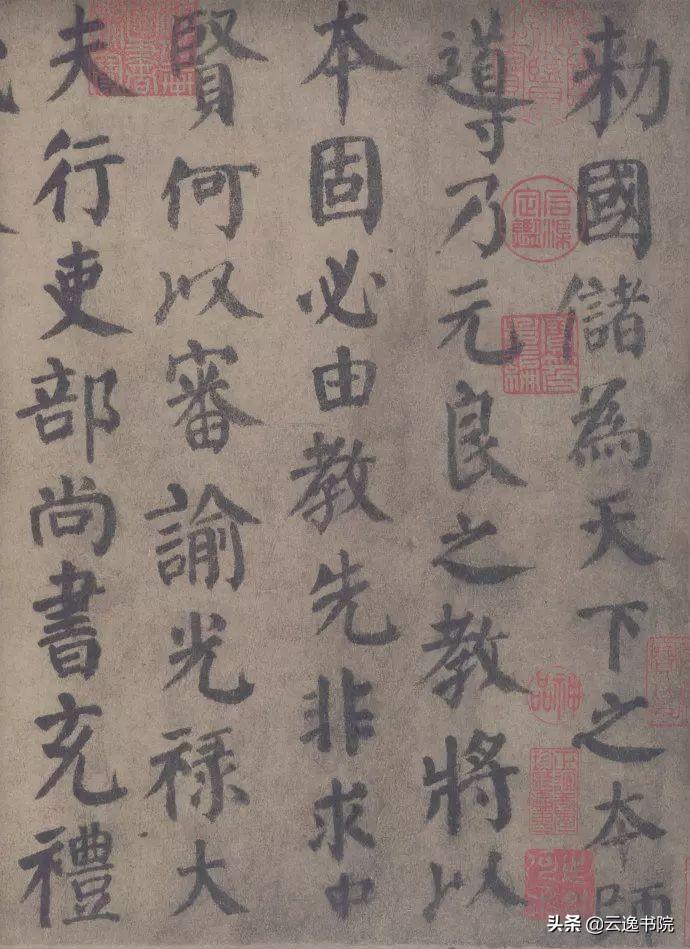 勅國儲為天下之本師
導乃元良之教將以
本固必由教先非求中
賢何以審諭光禄大
夫行吏部尚書充禮
神品
头条 @云逸书院